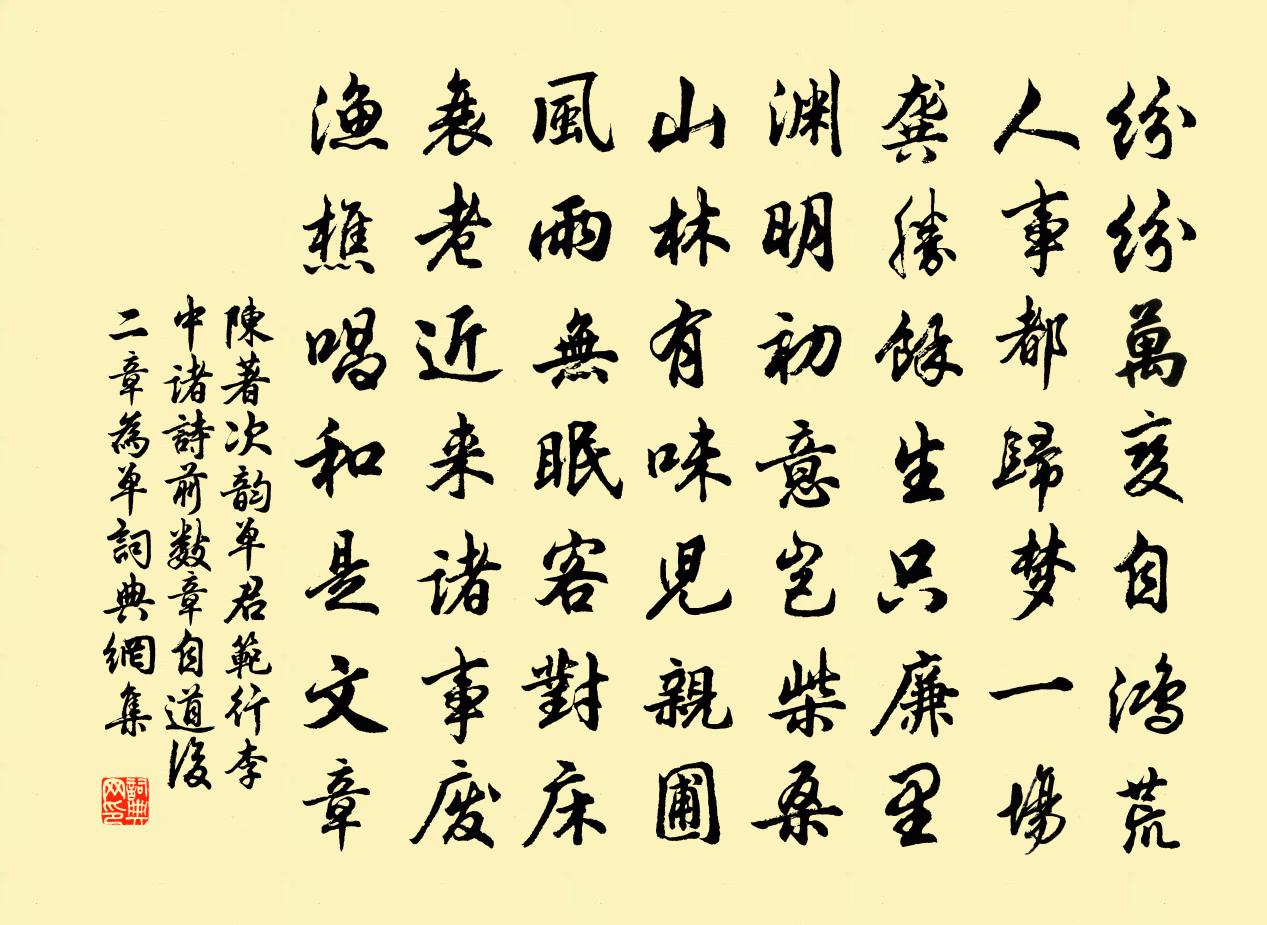 紛紛萬变自鴻荒
人事都歸梦一場
龔勝餘生只廉里
渊明初意岂柴桑
山林有味児親圃
風雨無眠客對床
衰老近来諸事废
漁樵唱和是文章
陳著次韵单君範行李
中諸詩前数章自道後
二章為单詞典網集
詞典网印